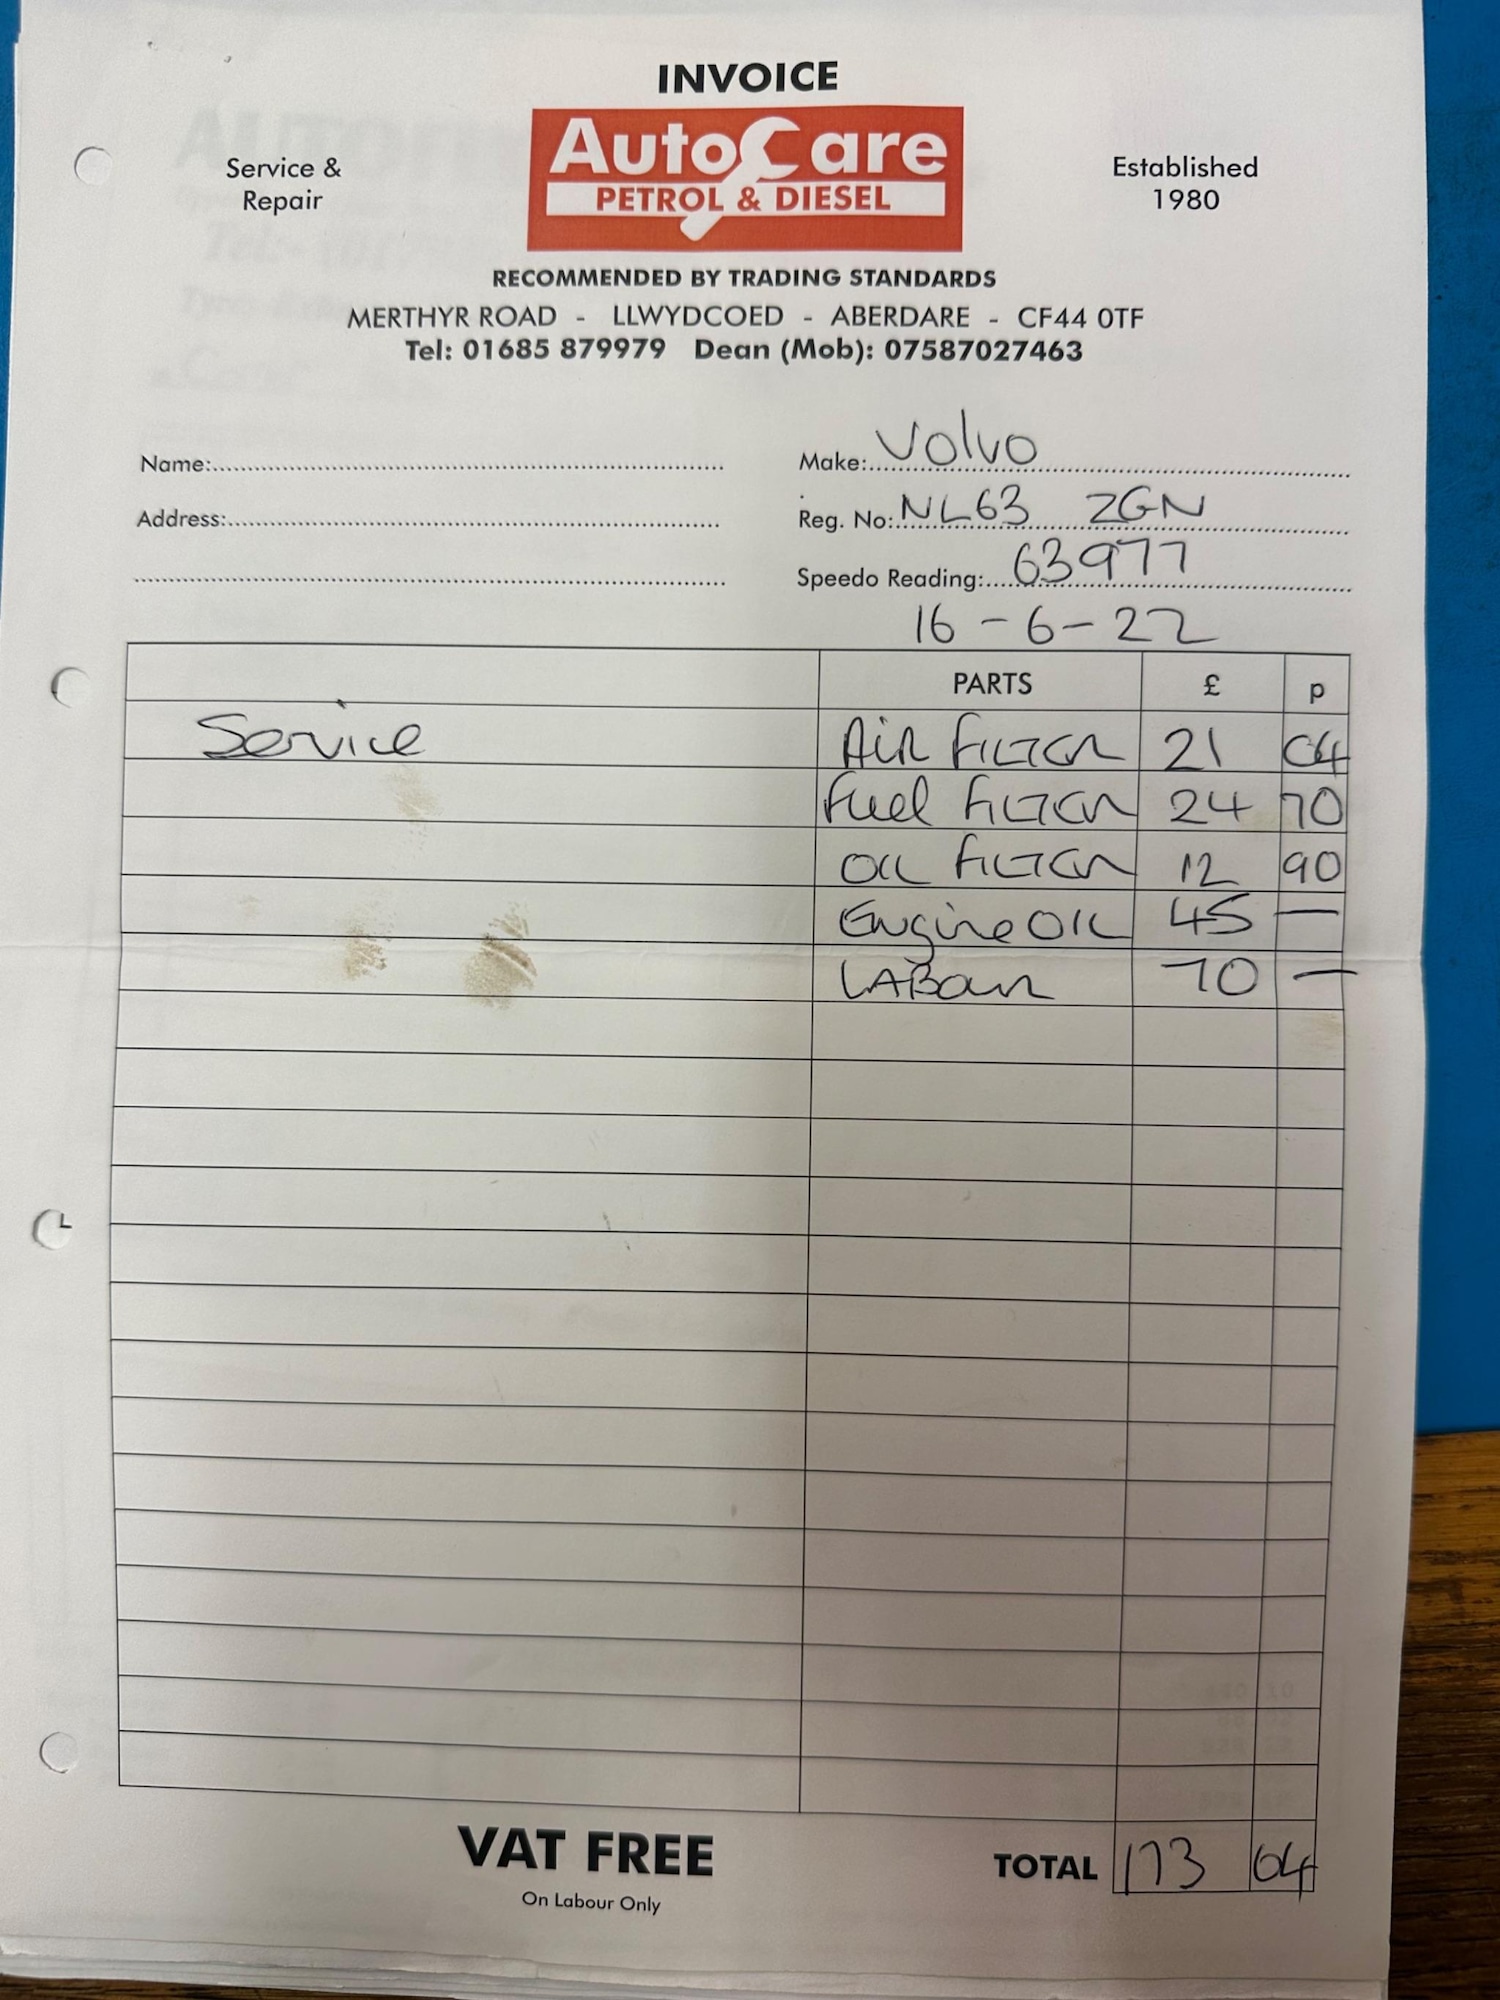 INVOICE
Service &
Repair
AutoCare
PETROL & DIESEL
Established
1980
RECOMMENDED BY TRADING STANDARDS
MERTHYR ROAD - LLWYDCOED - ABERDARE - CF44 0TF
Tel: 01685 879979 Dean (Mob): 07587027463
Name:
Make: Volvo
Address:
Reg. No: NL63 ZGN
Speedo Reading: 63977
16-6-22
PARTS £ p
Service Air Filter 21 04
Fuel Filter 24 70
Oil Filter 12 90
Engine Oil 45 —
Labour 70 —
VAT FREE
On Labour Only
TOTAL 173 64